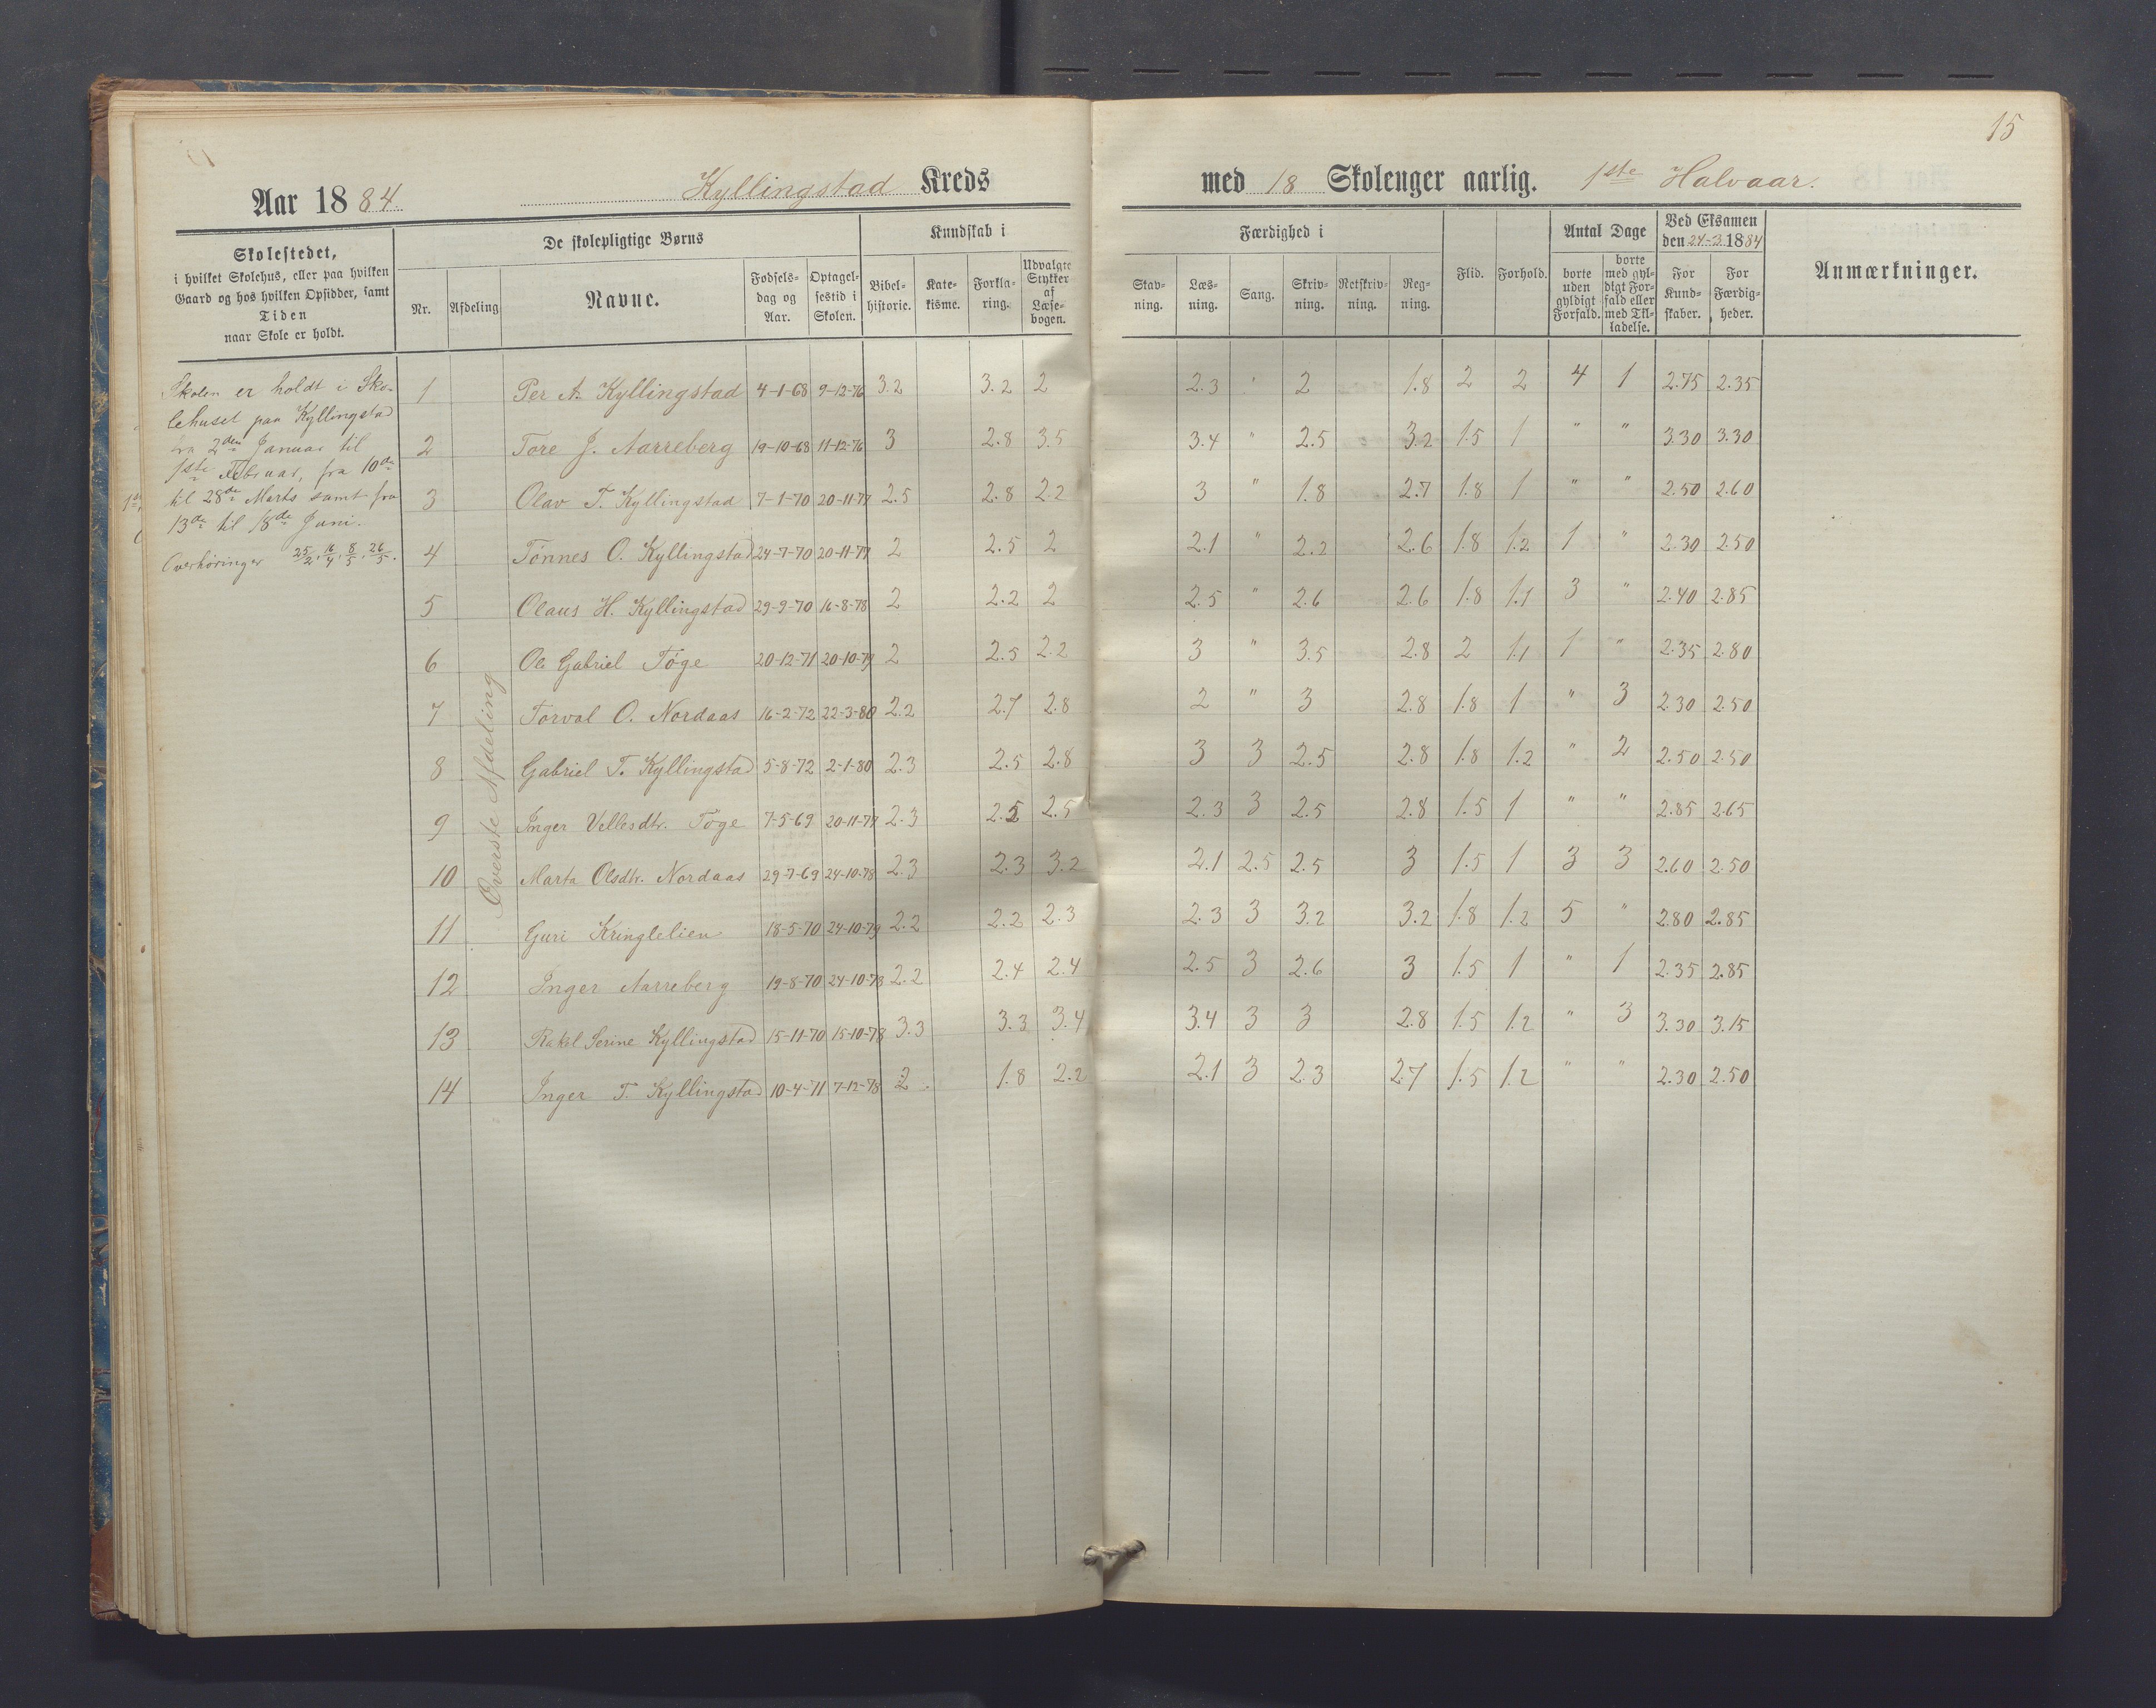 15
Aar 1884 Kyllingstad Kreds med 18 Skolenger aarlig. 1ste Halvaar.
Skolestedet,
i hvilket Skolehus, eller paa hvilken
Gaard og hos hvilken Opsidder, samt
Tiden
naar Skole er holdt.
De skolepligtige Børns
Nr. Afdeling Navne. Fødsels-dag og Aar. Optagel-sestid i Skolen.
Kundskab i
Bibel-historie. Kate-kisme. Forkla-ring. Udvalgte Stykker af Læse-bogen.
Færdighed i
Stav-ning. Læs-ning. Sang. Skriv-ning. Retskriv-ning. Reg-ning.
Flid. Forhold.
Antal Dage
borte uden gyldigt Forfald. borte med gyl-digt For-fald eller med Til-ladelse.
Ved Eksamen den 24-3 1884
For Kund-skaber. For Færdig-heder.
Anmærkninger.
Skolen er holdt i Sko-
lehuset paa Kyllingstad
fra 2den Januar til
1ste Februar, fra 10de
til 28de Marts samt fra
13de til 18de Juni.
Overhøringer 25/2, 16/4, 8/5, 26/5.
Øverste Afdeling
1 Per A. Kyllingstad 4-1-68 9-12-76 3.2 3.2 2 2.3 " 2 1.8 2 2 4 1 2.75 2.35
2 Tore J. Aarreberg 19-10-68 11-12-76 3 2.8 3.5 3.4 " 2.5 3.2 1.5 1 " " 3.30 3.30
3 Olav T. Kyllingstad 7-1-70 20-11-77 2.5 2.8 2.2 3 " 1.8 2.7 1.8 1 " " 2.50 2.60
4 Tønnes O. Kyllingstad 24-7-70 20-11-77 2 2.5 2 2.1 " 2.2 2.6 1.8 1.2 1 " 2.30 2.50
5 Olaus H. Kyllingstad 29-9-70 16-8-78 2 2.2 2 2.5 " 2.6 2.6 1.8 1.1 3 " 2.40 2.85
6 Ole Gabriel Tøge 20-12-71 20-10-79 2 2.5 2.2 3 " 3.5 2.8 2 1.1 1 " 2.35 2.80
7 Torval O. Nordaas 16-2-72 22-3-80 2.2 2.7 2.8 2 " 3 2.8 1.8 1 " 3 2.30 2.50
8 Gabriel T. Kyllingstad 5-8-72 2-1-80 2.3 2.5 2.8 3 3 2.5 2.8 1.8 1.2 " 2 2.50 2.50
9 Inger Vellesdtr. Tøge 7-5-69 20-11-77 2.3 2.5 2.5 2.3 3 2.5 2.8 1.5 1 " " 2.85 2.65
10 Marta Olsdtr. Nordaas 29-7-69 24-10-78 2.3 2.3 3.2 2.1 2.5 2.5 3 1.5 1 3 3 2.60 2.50
11 Guri Kringlelien 18-5-70 24-10-79 2.2 2.2 2.3 2.3 3 3.2 3.2 1.8 1.2 5 " 2.80 2.85
12 Inger Aarreberg 19-8-70 24-10-78 2.2 2.4 2.4 2.5 3 2.6 3 1.5 1 " 1 2.35 2.85
13 Rakel Serine Kyllingstad 15-11-70 15-10-78 3.3 3.3 3.4 3.4 3 3 2.8 1.5 1.2 " 3 3.30 3.15
14 Inger T. Kyllingstad 10-4-71 7-12-78 2. 1.8 2.2 2.1 3 2.3 2.7 1.5 1.2 " " 2.30 2.50